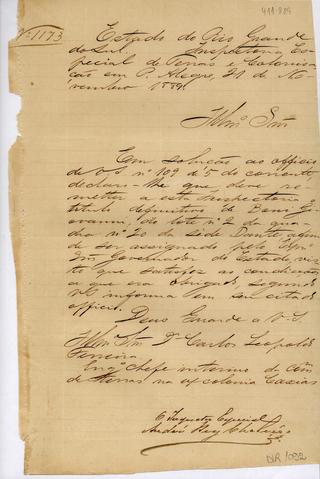 411-889
Nº 1173
Estado do Rio Grande
do Sul. Inspectoria Es-
pecial de Terras e Colonisa-
ção em P. Alegre, 21 de No-
vembro 1889.
Illmº Snr
Em solução ao officio
de V.S. nº 109 de 5 do corrente,
declaro-lhe que deve re-
metter a esta Inspectoria o
titulo definitivo de
do lote nº 2 da qua-
dra nº 20 da Séde Dante afim
de ser assignado pelo Exmº
Snr Governador do Estado, vis-
to que satisfez as condições
a que era obrigado, segundo
V.S. informa em seu citado
officio.
Deus Guarde a V.S.
Illmº Snr Dr Carlos Leopoldo
Ferreira
Engº Chefe interino da Com
de terras na ex colonia Caxias
O Inspector Especial
DLR 1092